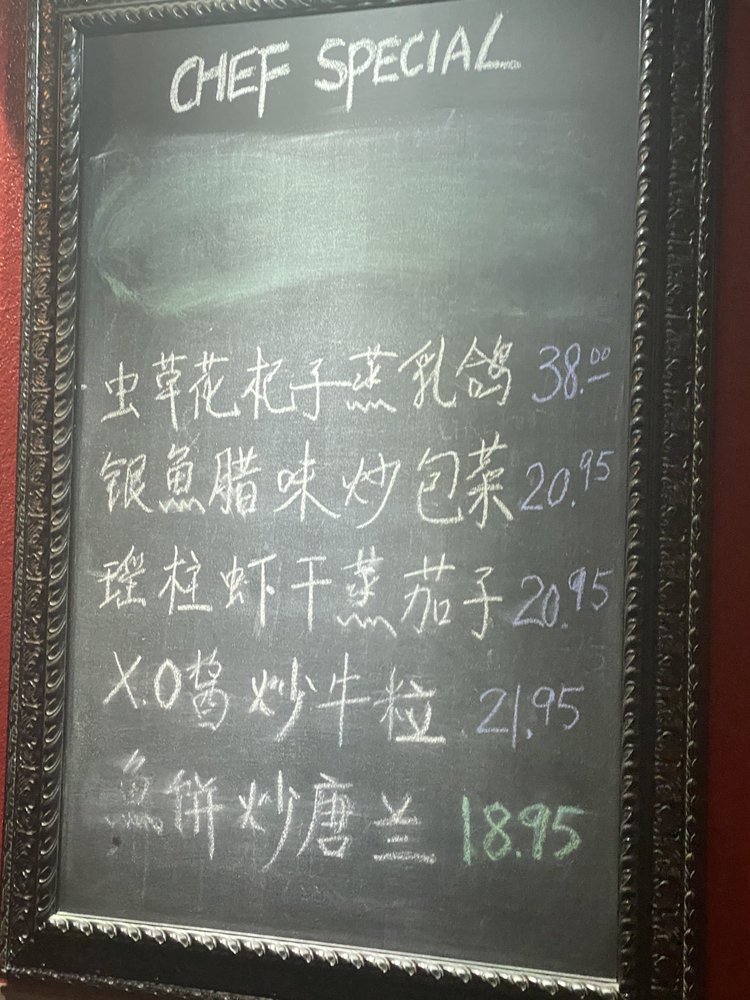 CHEF SPECIAL
虫草花杞子蒸乳鸽 38.00
银魚腊味炒包菜 20.95
瑶柱虾干蒸茄子 20.95
X.O酱炒牛粒 21.95
魚饼炒唐兰 18.95